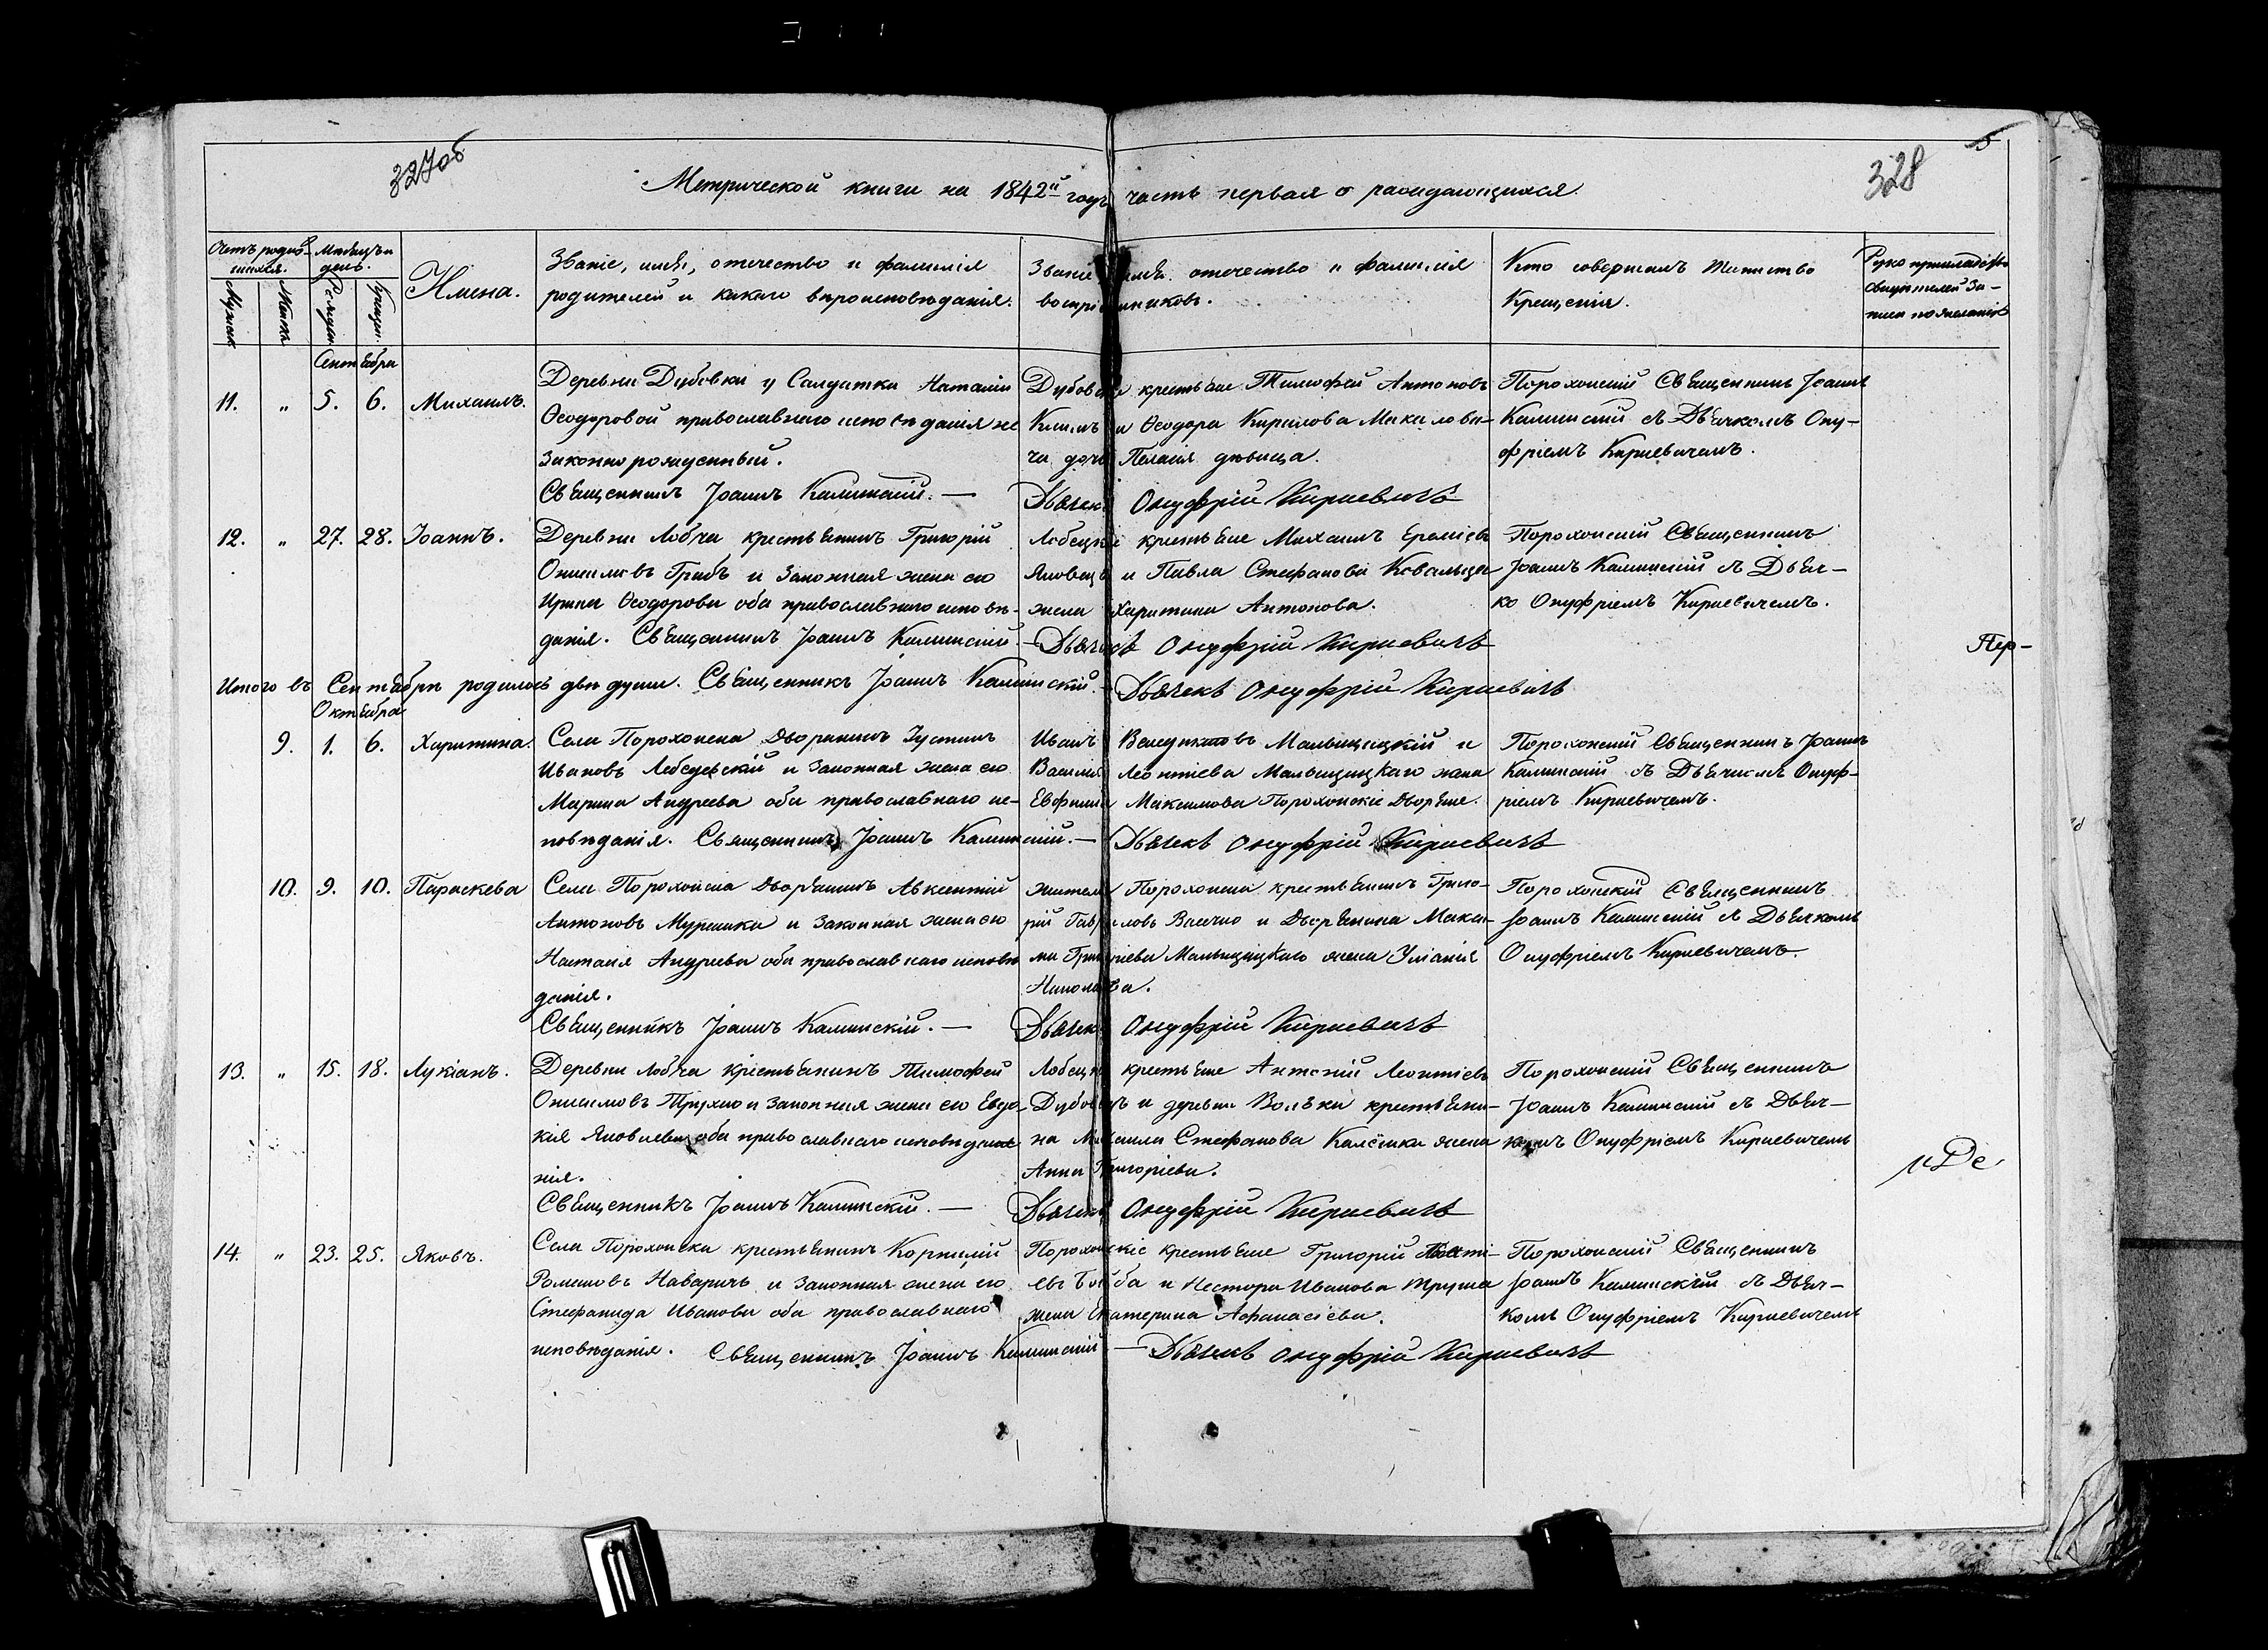 327об
328
5
Метрической книги на 1842й годъ часть первая о раждающихся.
Счетъ родив-
шихся.
Мужск.
Женск.
Месяцъ и
день.
Рожден.
Крещен.
Имена.
Званіе, имя, отечество и фамилія
родителей и какого вероисповѣданія.
Званіе имя, отечество и фамилія
воспріемниковъ.
Кто совершалъ таинство
Крещенія.
Руко прикладство
свидѣтелей за-
писи по желанію
Сентября
11. " 5. 6. Михаилъ.
Деревни Дубовки у Салдатки Наталіи
Ѳеодоровой православнаго исповѣданія не
законнорожденный.
Священникъ Іоаннъ Калинскій. —
крестьяне Тимофей Антоновъ
Климъ и Ѳеодора Кирилова Макалови-
ча дочь Пелагія дѣвица.
Дьячекъ Онуфрій Кирневичъ
Порохонскій Священникъ Іоаннъ
Калинскій съ Дьячкомъ Ону-
фріемъ Кирневичемъ.
12. " 27. 28. Іоаннъ.
Деревни Лобча крестьянинъ Григорій
Онисимовъ Грибъ и законная жена его
Ирина Ѳеодорова оба православнаго исповѣ-
данія. Священникъ Іоаннъ Калинскій. —
крестьяне Михаилъ Ереміевъ
и Павла Стефанова Ковальца
жена Харитина Антонова.
Дьячекъ Онуфрій Кирневичъ
Порохонскій Священникъ
Іоаннъ Калинскій съ Дьяч-
ко Онуфріемъ Кирневичемъ.
Пер-
Итого въ Сентябрѣ родилось двѣ души. Священникъ Іоаннъ Калинскій. — Дьячекъ Онуфрій Кирневичъ
Октября
9. 1. 6. Харитина.
Села Порохонска Дворянинъ Іустинъ
Ивановъ Лебедевскій и законная жена его
Марина Андреева оба православнаго ис-
повѣданія. Священникъ Іоаннъ Калинскій. —
Иванъ Венедиктовъ Мальщицкій и
Василія Леонтіева Мальщицкаго жена
Евфимія Максимова Порохонскіе Дворяне.
Дьячекъ Онуфрій Кирневичъ
Порохонскій Священникъ Іоаннъ
Калинскій съ Дьячкомъ Онуф-
ріемъ Кирневичемъ.
10. 9. 10. Параскева
Села Порохонска Дворянинъ Авксентій
Антоновъ Мурашка и законная жена его
Наталія Андреева оба православнаго исповѣ
данія.
Священникъ Іоаннъ Калинскій. —
жители Порохонска крестьянинъ Григо-
рій и Дворянина Макси-
ма Григоріева Мальщицкаго жена Уліанія
Николаева.
Дьячекъ Онуфрій Кирневичъ
Порохонскій Священникъ
Іоаннъ Калинскій съ Дьячкомъ
Онуфріемъ Кирневичемъ.
13. " 15. 18. Лукіанъ.
Деревни Лобча крестьянинъ Тимофей
Онисимовъ Трухно и законная жена его Евдо-
кія Яковлева оба православнаго исповѣда
нія.
Священникъ Іоаннъ Калинскій. —
крестьяне Антоній Леонтіевъ
Дубовецъ и деревни Вольки крестьяни-
на Михаила Стефанова жена
Анна Григоріева.
Дьячекъ Онуфрій Кирневичъ
Порохонскій Священникъ
Іоаннъ Калинскій съ Дьяч-
комъ Онуфріемъ Кирневичемъ
14. " 23. 25. Яковъ.
Села Порохонска крестьянинъ Корнилій
Романовъ Наваричъ и законная жена его
Стефанида Иванова оба православнаго
исповѣданія. Священникъ Іоаннъ Калинскій —
Порохонскіе крестьяне Григорій
и Нестора Иванова
жена Екатерина Афанасіева.
Дьячекъ Онуфрій Кирневичъ
Порохонскій Священникъ
Іоаннъ Калинскій съ Дьяч-
комъ Онуфріемъ Кирневичемъ